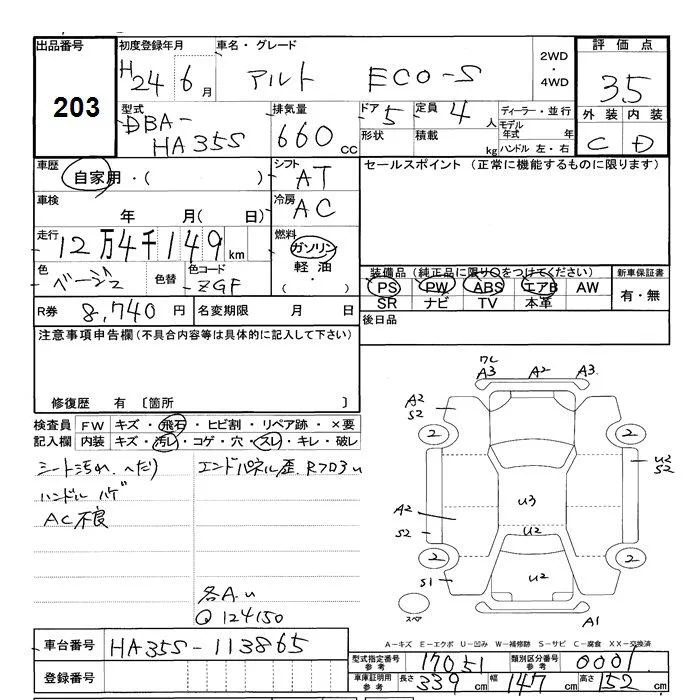 出品番号
203
初度登録年月
H24年6月
車名・グレード
アルト ECO-S
2WD
・
4WD
評価点
3.5
外装 内装
C D
型式
DBA-
HA35S
排気量
660 cc
ドア 5
定員 4 人
形状
積載 kg
ディーラー・並行
モデル年式 年
ハンドル 左・右
車歴
自家用・( )
シフト AT
セールスポイント (正常に機能するものに限ります)
車検
年 月( 日)
冷房 AC
走行
12万4千149 km
燃料
ガソリン
軽油
( ・ )
色
ベージュ
色替
色コード
ZGF
装備品(純正品に限り○をつけてください)
PS PW ABS エアB AW
SR ナビ TV 本革
新車保証書
有・無
R券 8,740 円
名変期限 月 日
後日品
注意事項申告欄(不具合内容等は具体的に記入して下さい)
修復歴 有 〔箇所 〕
検査員 FW キズ・飛石・ヒビ割・リペア跡・×要
記入欄 内装 キズ・汚レ・コゲ・穴・スレ・キレ・破レ
シート汚れ、へたり
ハンドルハゲ
AC不良
エンドパネル歪、Rフロ3u
各A.u
Q 124150
A3 A2 A3
A2
S2
2 2
U2
S2
A2
S2
U3
U2
2 2
S1
U2
スペア
A1
A―キズ E―エクボ U―凹み W―補修跡 S―サビ C―腐食 XX―交換済
車台番号 HA35S-113865
登録番号
型式指定番号参考 17051
類別区分番号参考 0001
車庫証明用参考 長さ 339 cm 幅 147 cm 高さ 152 cm